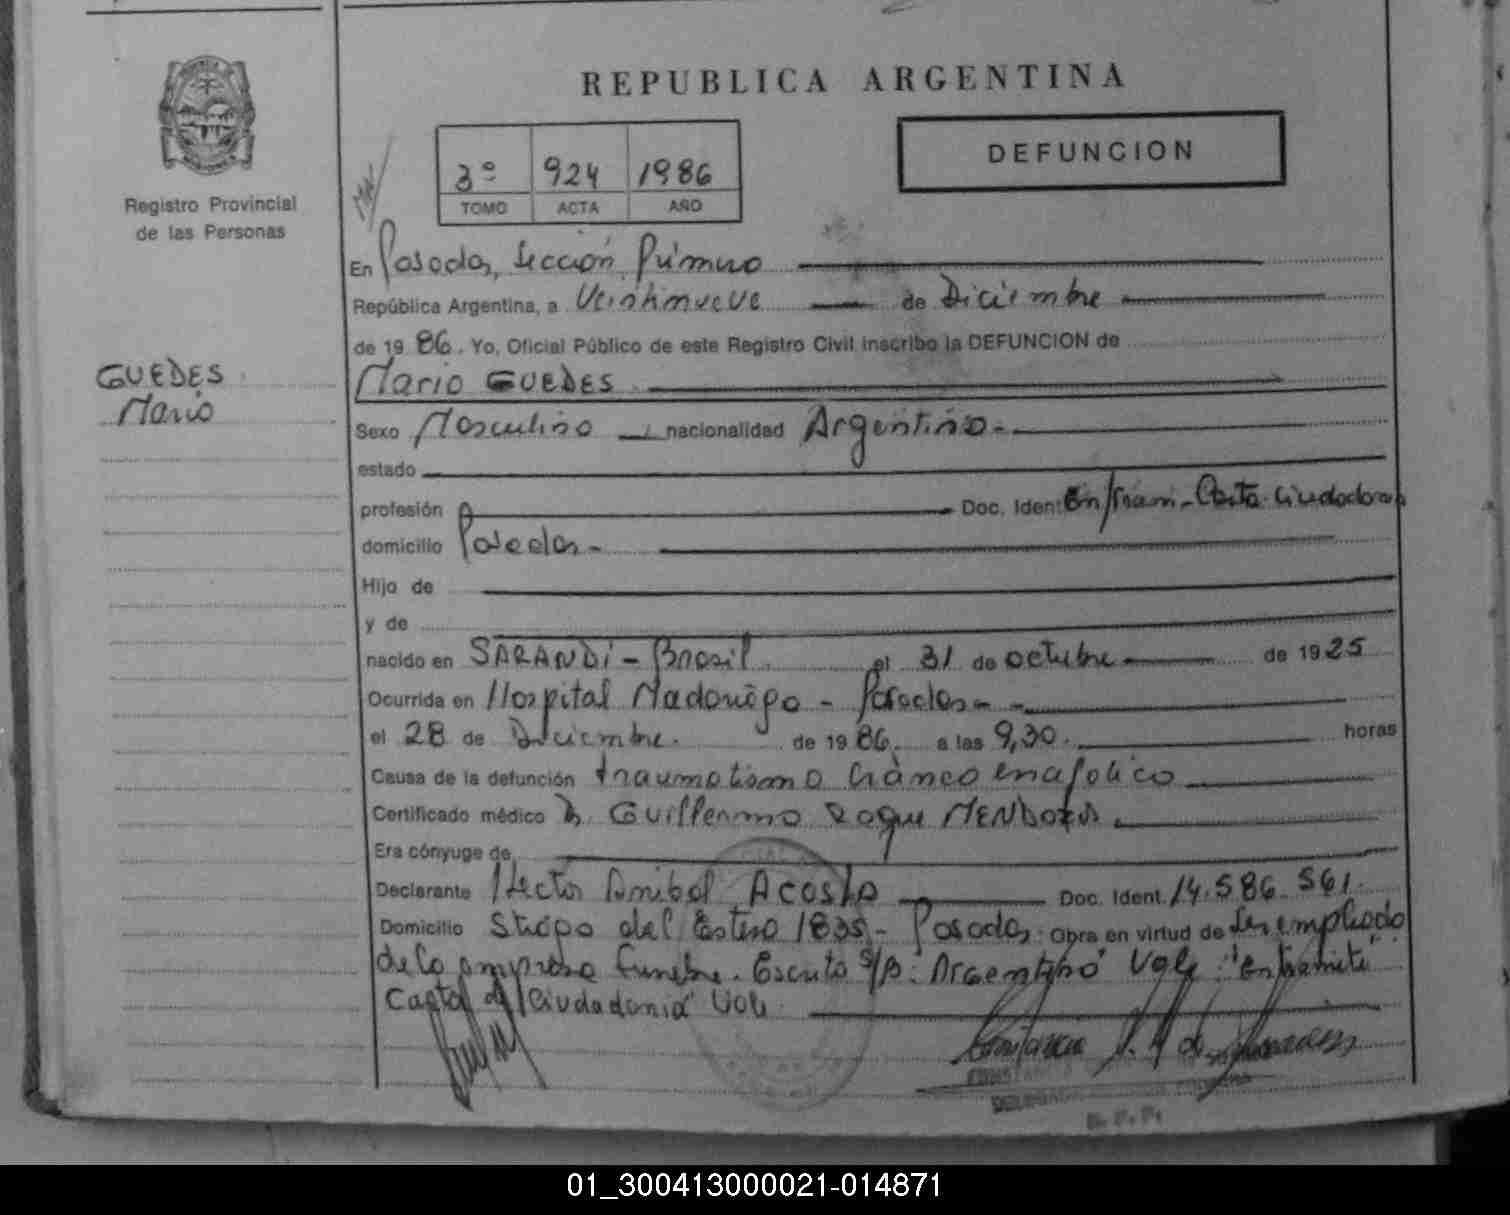 REPUBLICA ARGENTINA
DEFUNCION
3º 924 1986
TOMO ACTA AÑO
Registro Provincial
de las Personas
GUEDES
Mario
En Posadas, Sección Primera
República Argentina, a Veintinueve de Diciembre
de 19 86. Yo, Oficial Público de este Registro Civil inscribo la DEFUNCION de
Mario GUEDES
Sexo Masculino nacionalidad Argentino.-
estado
profesión Doc. Ident. En tram-Carta Ciudadania
domicilio Posadas-
Hijo de
y de
nacido en SARANDI - Brasil. el 31 de octubre de 1925
Ocurrida en Hospital Madariaga - Posadas-
el 28 de Diciembre. de 19 86. a las 9,30. horas
Causa de la defunción traumatismo cráneo encefálico
Certificado médico Dr. Guillermo Roque MENDOZA
Era cónyuge de
Declarante Hector Anibal ACOSTA Doc. Ident. 14.586.561.
Domicilio Stgo del Estero 1835 - Posadas Obra en virtud de Ser empleado
de la empresa funebre. Escrito s/r: "Argentino" Vale: "en tramite"
Carta de "Ciudadania" Vale.
01_300413000021-014871